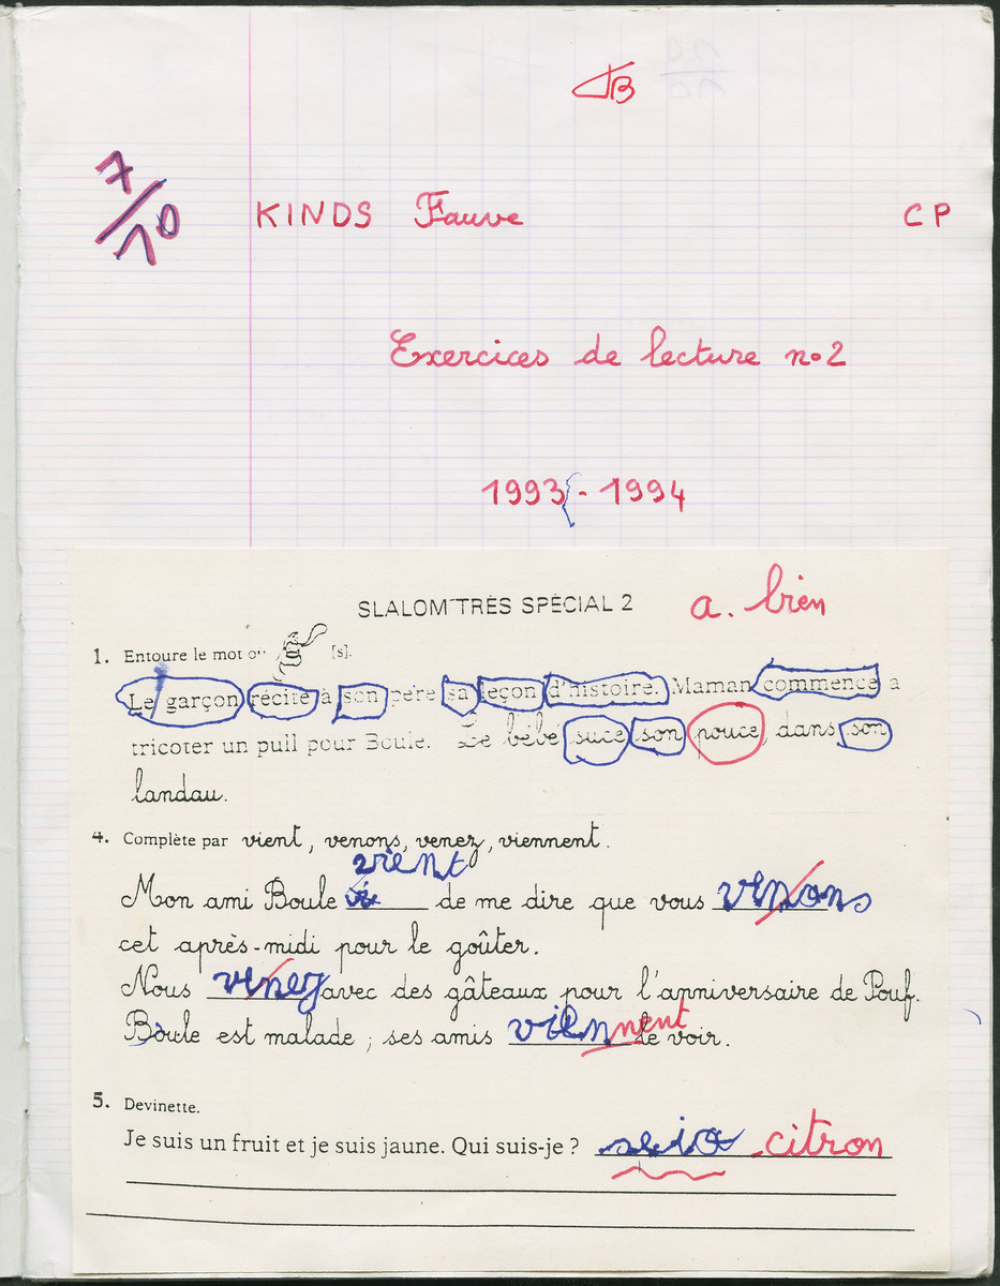 JB
7/10
KINDS Fauve CP
Exercices de lecture n°2
1993 - 1994
SLALOM TRÈS SPÉCIAL 2 a. bien
1. Entoure le mot où [s].
Le garçon récite à son père sa leçon d'histoire. Maman commence à
tricoter un pull pour Boule. Le bébé suce son pouce, dans son
landau.
4. Complète par vient, venons, venez, viennent.
vient
Mon ami Boule de me dire que vous venons
cet après-midi pour le goûter.
Nous venez avec des gâteaux pour l'anniversaire de Pouf.
Boule est malade ; ses amis viennent le voir.
5. Devinette.
Je suis un fruit et je suis jaune. Qui suis-je ? citron